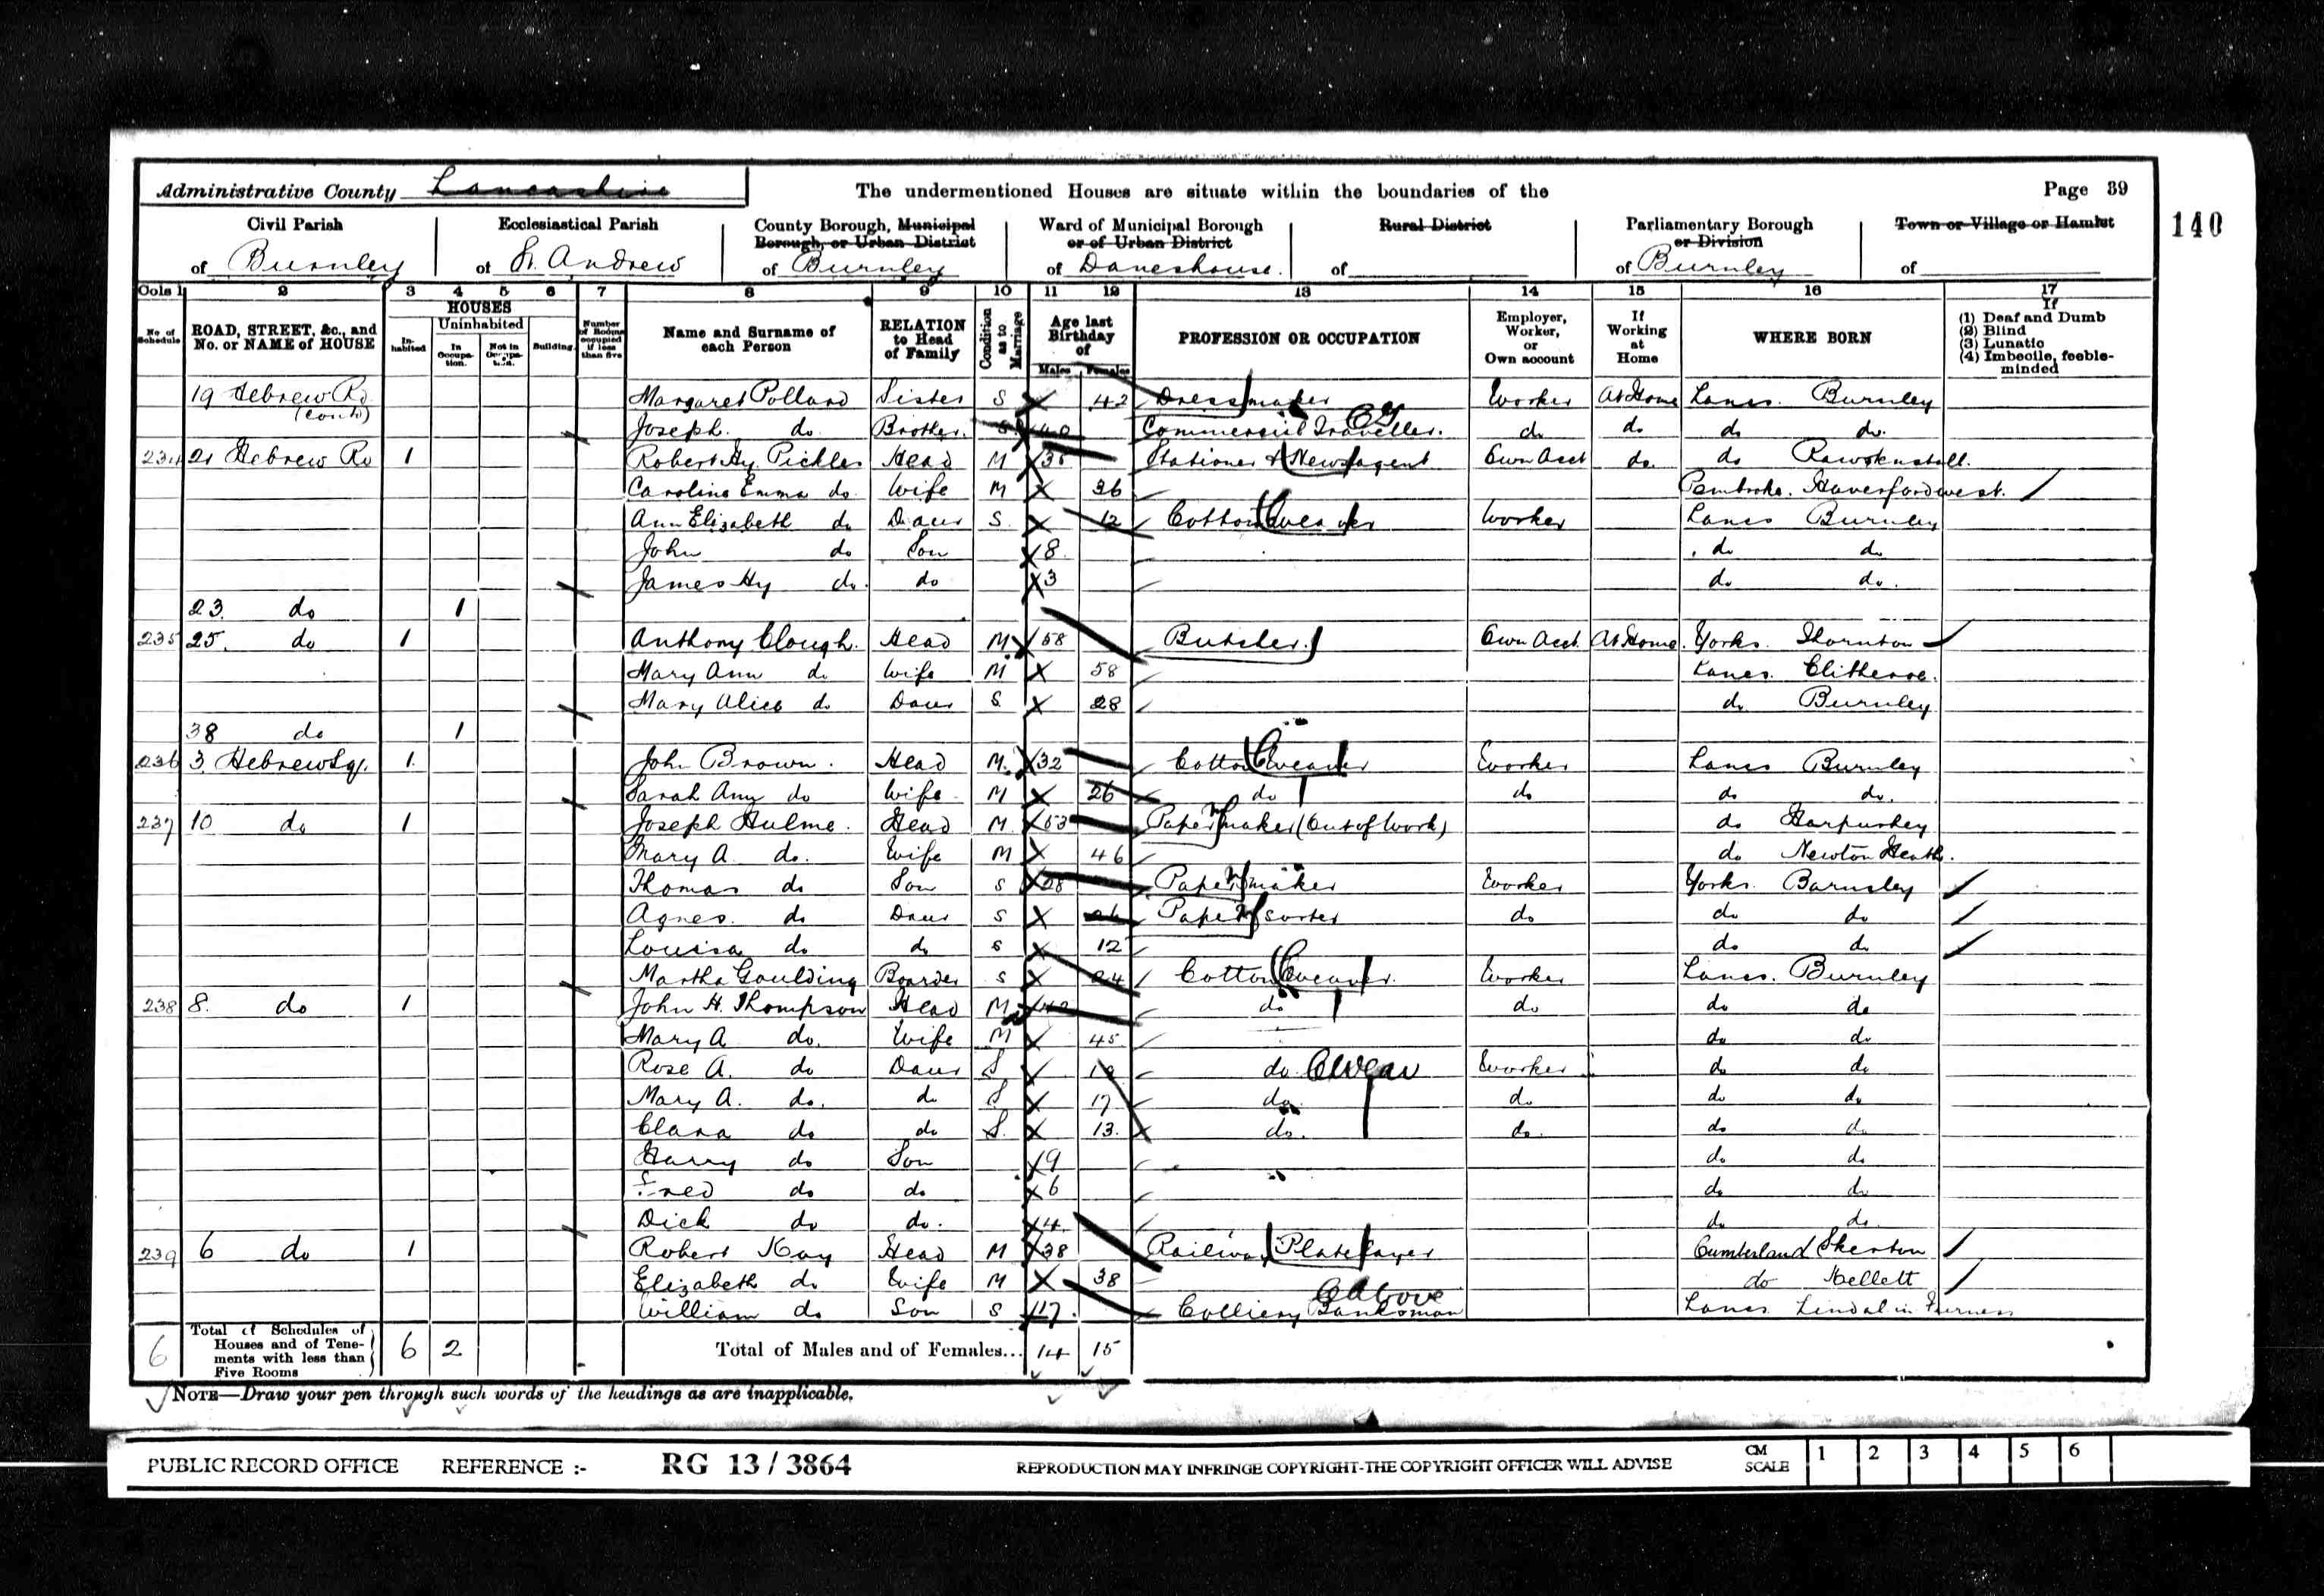 Administrative County Lancashire The undermentioned Houses are situate within the boundaries of the Page 39
140
Civil Parish Ecclesiastical Parish County Borough, Municipal Ward of Municipal Borough Rural District Parliamentary Borough Town or Village or Hamlet
Borough, or Urban District or of Urban District or Division
of Burnley of St. Andrew of Burnley of Daneshouse. of of Burnley of
Cols 1 2 3 4 5 6 7 8 9 10 11 12 13 14 15 16 17
No of Schedule ROAD, STREET, &c., and No. or NAME of HOUSE HOUSES In-habited Uninhabited In Occupa-tion. Not in Occupa-tion. Building. Number of Rooms occupied if less than five Name and Surname of each Person RELATION to Head of Family Condition as to Marriage Age last Birthday of Males Females PROFESSION OR OCCUPATION Employer, Worker, or Own account If Working at Home WHERE BORN If (1) Deaf and Dumb (2) Blind (3) Lunatic (4) Imbecile, feeble-minded
19 Hebrew Rd (contd) Margaret Pollard Sister S 42 Dressmaker Worker At Home Lancs. Burnley
Joseph do Brother. S 40 Commercial Traveller. do do do do.
234 21 Hebrew Rd 1 Robert Hy. Pickles Head M 35 Stationer & Newsagent Own Acct do. do Rawtenstall.
Caroline Emma do. Wife M 36 Pembroke. Haverfordwest.
Ann Elizabeth do Daur S. 12 Cotton Weaver Worker Lancs Burnley
John do Son 8. do do
James Hy do. do 3 do do.
23. do 1
235 25. do 1 Anthony Clough. Head M 58 Butcher Own Acct. At Home. Yorks. Thornton
Mary Ann do Wife M 58 Lancs. Clitheroe.
Mary Alice do Daur S 28 do Burnley
38 do 1
236 3. Hebrew Sq. 1. John Brown. Head M. 32 Cotton Weaver Worker Lancs Burnley
Sarah Ann do Wife M 26 do do do do.
237 10 do 1 Joseph Hulme. Head M 53 Paper maker (Out of Work) do Harpurhey
Mary A. do. Wife M 46 do Newton Heath.
Thomas do Son S 28 Paper maker Worker Yorks. Barnsley
Agnes. do Daur S Paper sorter do do do
Louisa do do S 12 do do
Martha Goulding Boarder S 24 Cotton Weaver. Worker Lancs. Burnley
238 8. do 1 John H. Thompson Head M do do do do
Mary A do. Wife M 45 do do
Rose A. do Daur S do CWeav Worker do do
Mary A. do. do S 17 do do do do
Clara do do S. 13. do. do. do do
Harry do Son 9 do do
Fred do do 6 do do
Dick do do. 4. do do
239 6 do 1 Robert Kay Head M 38 Railway Platelayer Cumberland
Elizabeth do Wife M 38 do Kellett
William do Son S 17. Colliery Banksman Above Lancs Lindal in Furness
6 Total of Schedules of Houses and of Tene-ments with less than Five Rooms 6 2 Total of Males and of Females... 14 15
NOTE—Draw your pen through such words of the headings as are inapplicable.
PUBLIC RECORD OFFICE REFERENCE :- RG 13 / 3864 REPRODUCTION MAY INFRINGE COPYRIGHT-THE COPYRIGHT OFFICER WILL ADVISE CM SCALE 1 2 3 4 5 6